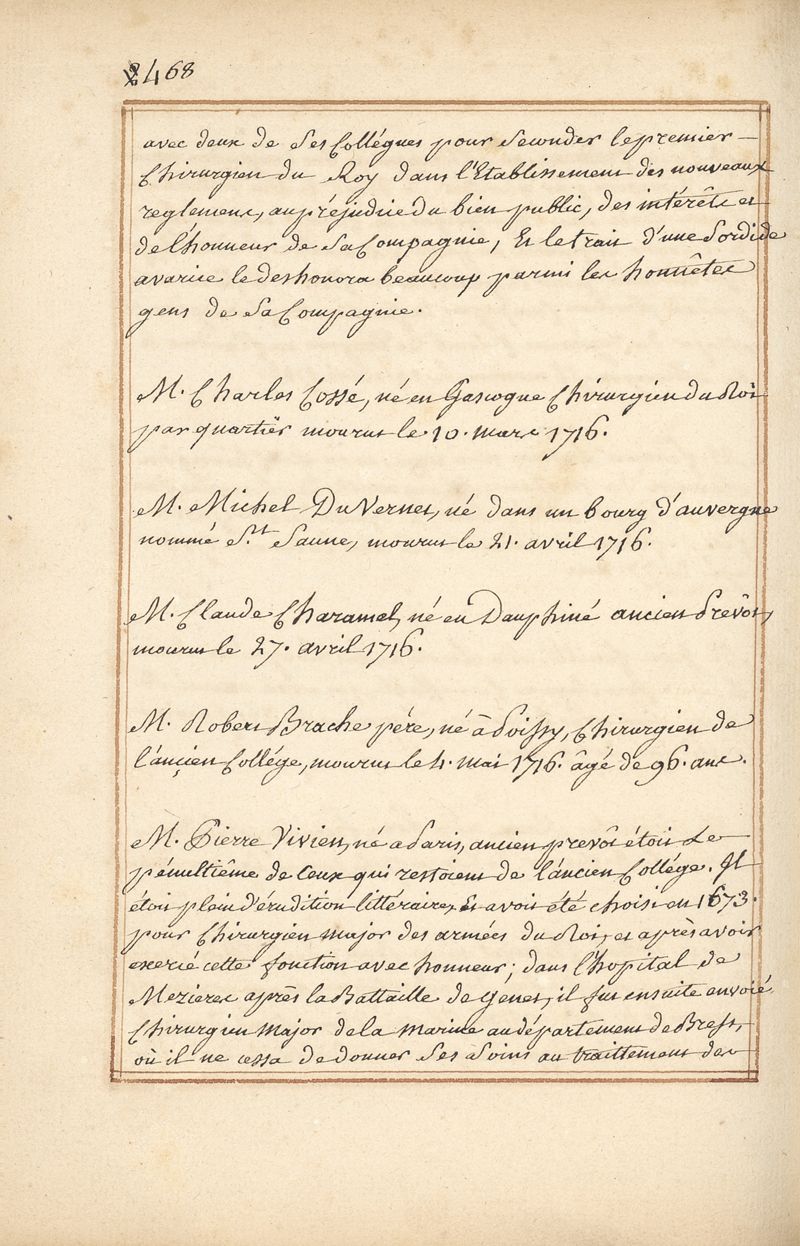 2468
avec deux de ses Collégues pour seconder le premier
Chirurgien du Roy dans l'Etablissement des nouveaux
reglemens, au préjudice du bien public, des intérêts et
de l'honneur de sa Compagnie, Et le trait d'une sordide
avarice le deshonora beaucoup parmi les honnêtes
gens de sa Compagnie.
M. Charles Cossé, né en Gascogne Chirurgien du Roi
par quartier mourut le 10. mars 1716.
M. Michel DuVernet, né dans un bourg d'auvergne
nommé S.t Saune, mourut le 21. avril 1716.
M. Claude Charamel, né en Dauphiné ancien Prevôt,
mourut le 27. avril 1716.
M. Robert Brache pére, né à Poissy, Chirurgien de
l'ancien Collége, mourut le 4. mai 1716. âgé de 96. ans.
M. Pierre Vivien, né a Paris, ancien prevôt étoit Le
pénultiême de Ceux qui restoient de l'ancien Collége. Il
étoit plein d'érudition littéraire, Et avoit été choisi en 1673.
pour Chirurgien Major des armées du Roi, et après avoir
exercé cette fonction avec honneur; dans l'hopital de
Mezieres après la Battaille de Senef, il fut ensuite envoié
Chirurgien Major de la Marine au département de Brest,
où il ne cessa de donner ses soins au traittement des